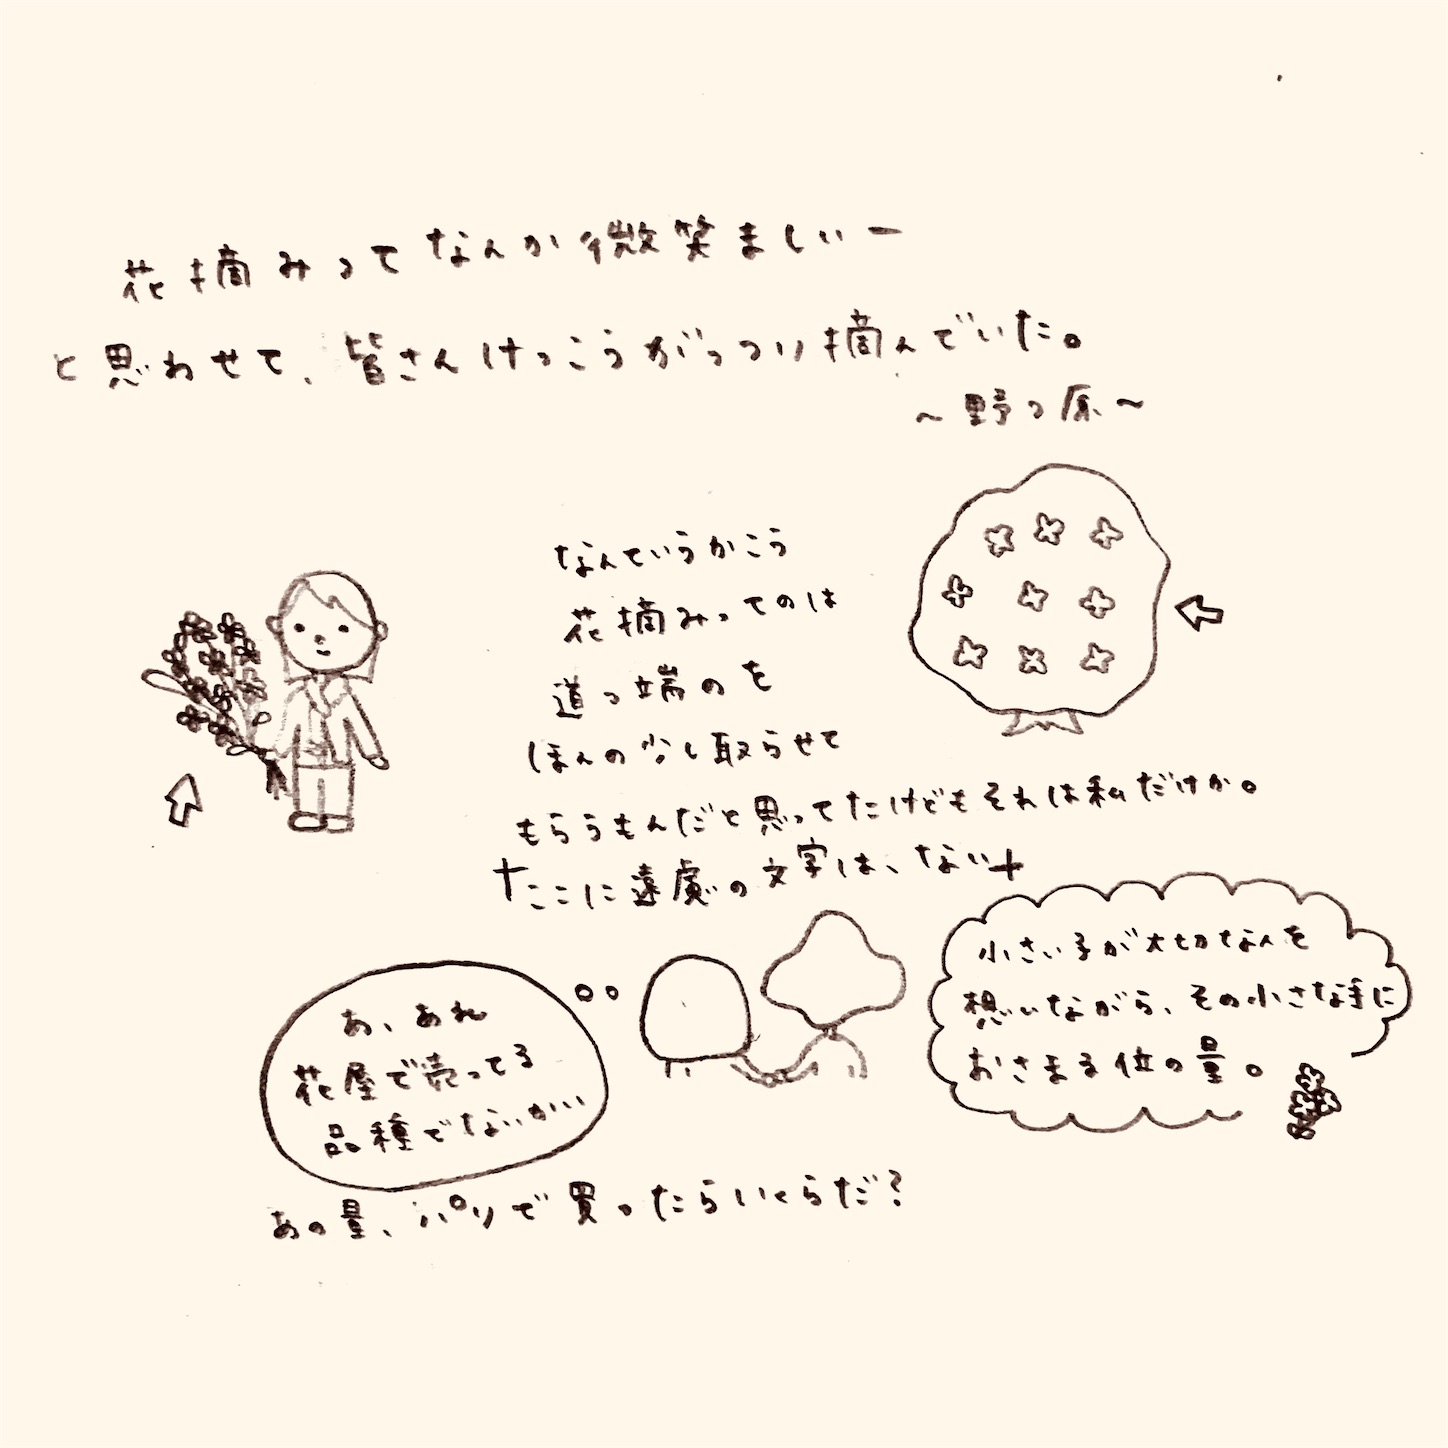 花摘みってなんか微笑ましいー
と思わせて、皆さんけっこうがっつり摘んでいた。
〜野っ原〜
なんていうかこう
花摘みってのは
道っ端のを
ほんの少し取らせて
もらうもんだと思ってたけどもそれは私だけか。
ここに遠慮の文字は、ない
小さい子が大切な人を
想いながら、その小さな手に
おさまる位の量。
あ、あれ
花屋で売ってる
品種でないかい
あの量、パリで買ったらいくらだ?